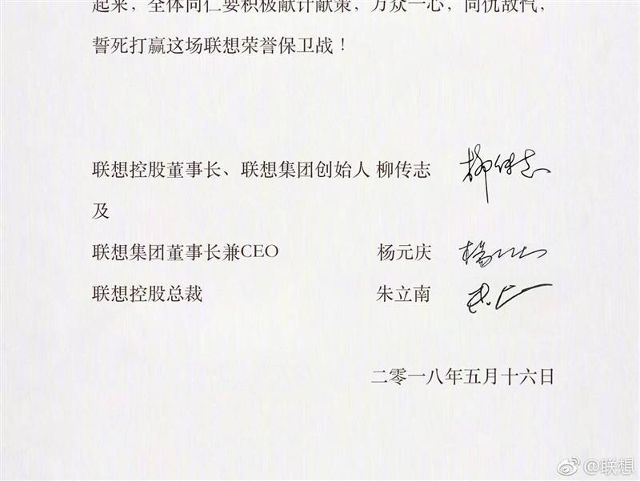 起来，全体同仁要积极献计献策，万众一心，同仇敌忾，
誓死打赢这场联想荣誉保卫战！
联想控股董事长、联想集团创始人 柳传志 柳传志
及
联想集团董事长兼CEO 杨元庆
联想控股总裁 朱立南
二零一八年五月十六日
@联想